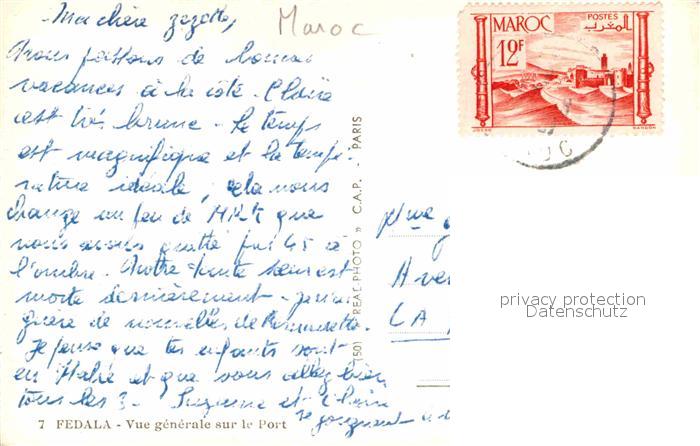 Ma chère zozotte,
Maroc
Nous passons de bonnes
vacances à la côte. Claire
est très brune. Le temps
est magnifique et la tempé-
rature idéale, cela nous
change un peu de que
nous avons quitté 45 à
l'ombre. Notre tante est
morte dernièrement -
de nouvelles de
Je pense que tes enfants sont
en Italie et que vous allez bien
tous les 3. Suzanne et Claire
se joignent à
7 FEDALA - Vue générale sur le Port
"REAL-PHOTO" C.A.P. - PARIS
MAROC
POSTES
المغرب
12F
Mme
Ave
LA
privacy protection
Datenschutz